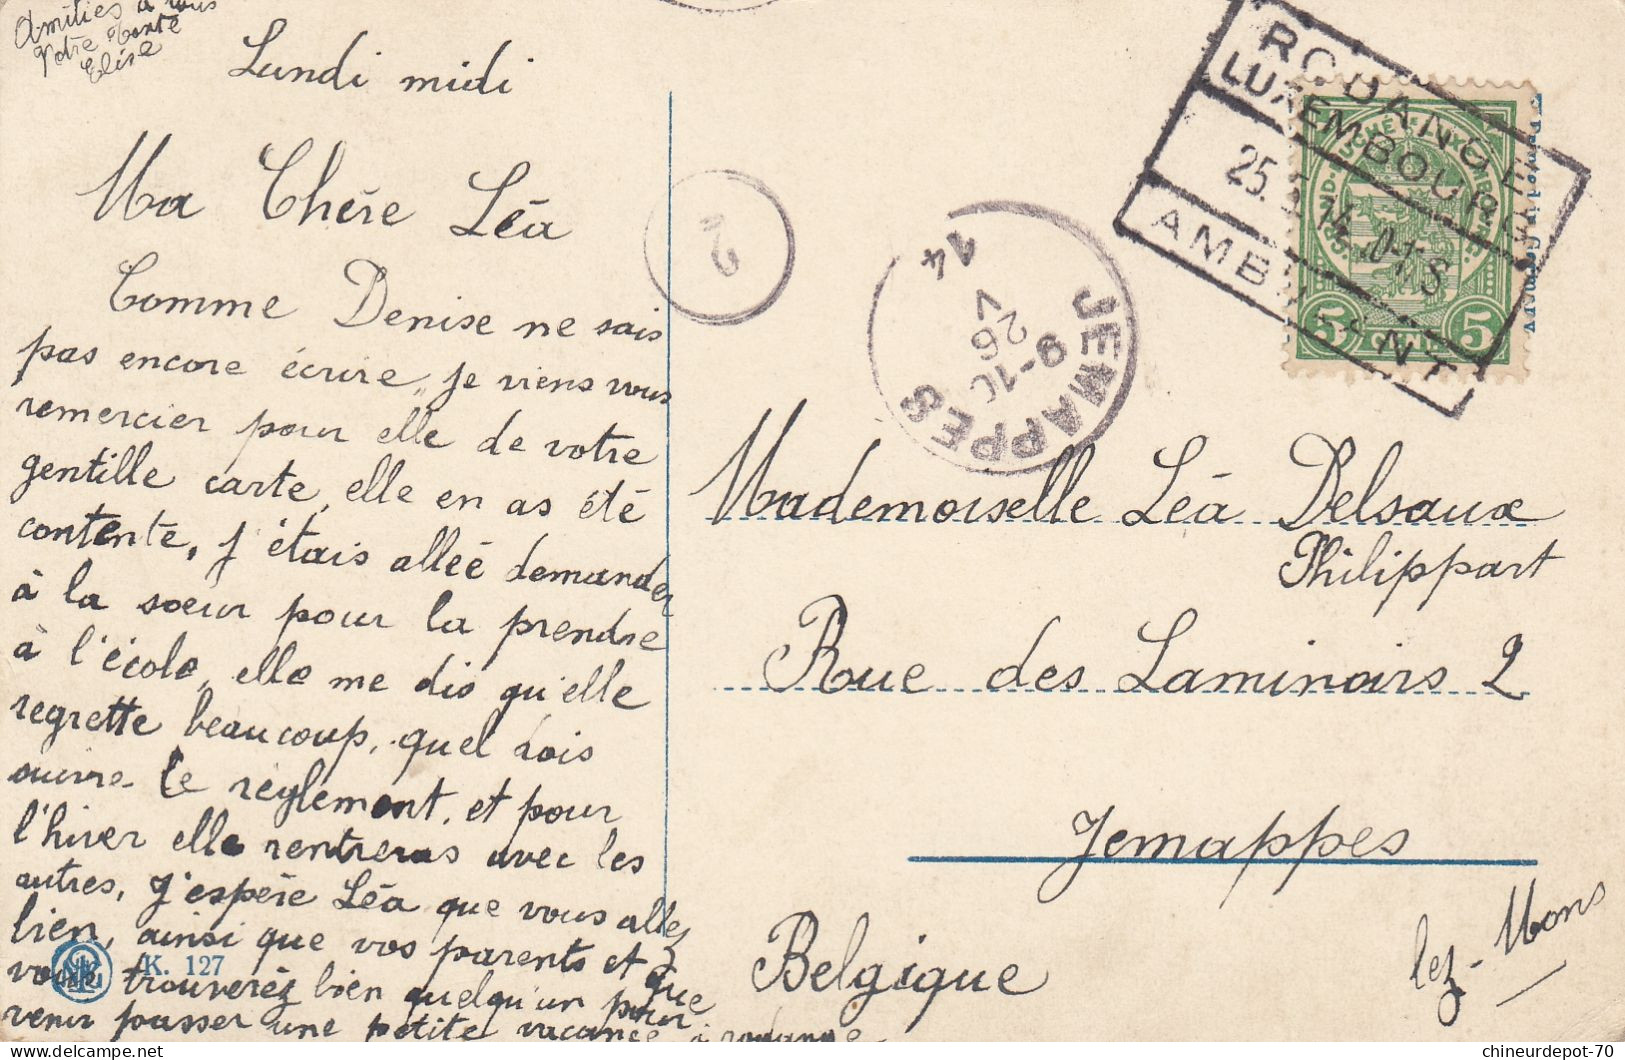 Amitiés à vous
Votre Tante
Elise
Lundi midi
Ma Chère Léa
Comme Denise ne sais
pas encore écrire, je viens vous
remercier pour elle de votre
gentille carte, elle en as été
contente, j'étais alleé demander
à la soeur pour la prendre
à l'école, elle me dis qu'elle
regrette beaucoup, quel dois
suivre le réglement, et pour
l'hiver elle rentreras avec les
autres, J'espére Léa que vous allez
bien, ainsi que vos parents et que
vous trouveréz bien quelqu'un pour
venir passer une petite vacance à rodange
K. 127
2
JEMAPPES
9-10
26
V
14
RODANGE
LUXEMBOURG
25. 14
AMBULANT
GRAND-DUCHÉ DE LUXEMBOURG
5 CENT. 5
Printed in Germany
Mademoiselle Léa Delsaux
Philippart
Rue des Laminoirs 2
Jemappes
lez-Mons
Belgique
chineurdepot-70